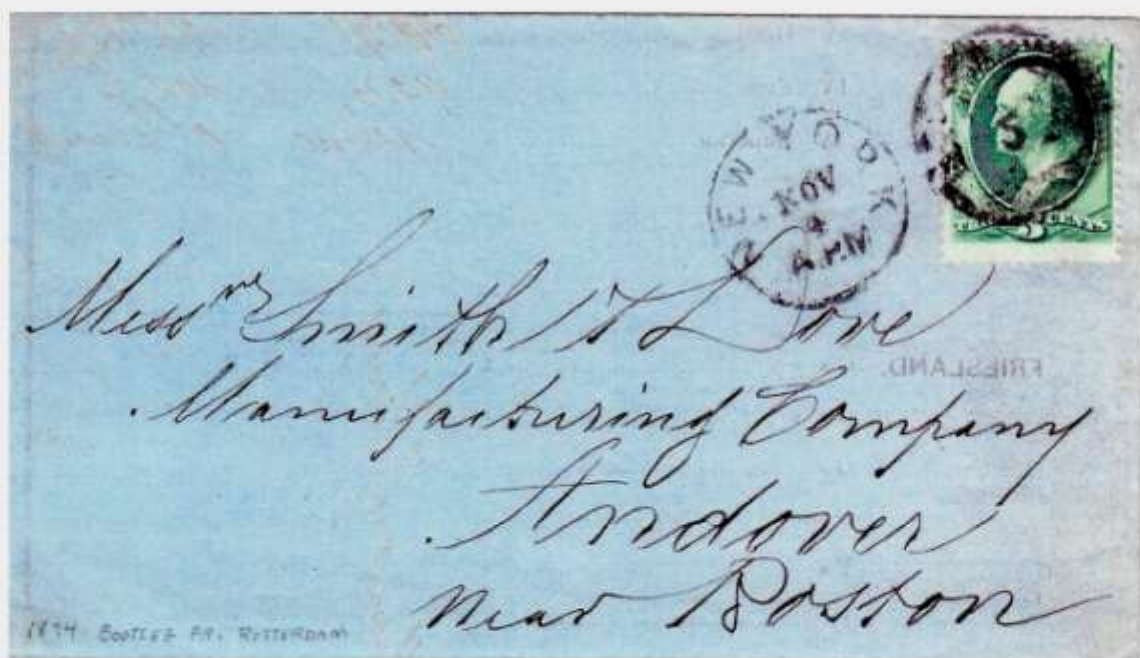 NEW YORK
NOV
4
4 P.M
Mess rs Smith & Dove
Manufacturing Company
Andover
near Boston
FRIESLAND.
1874 BOOTLEG FR. ROTTERDAM